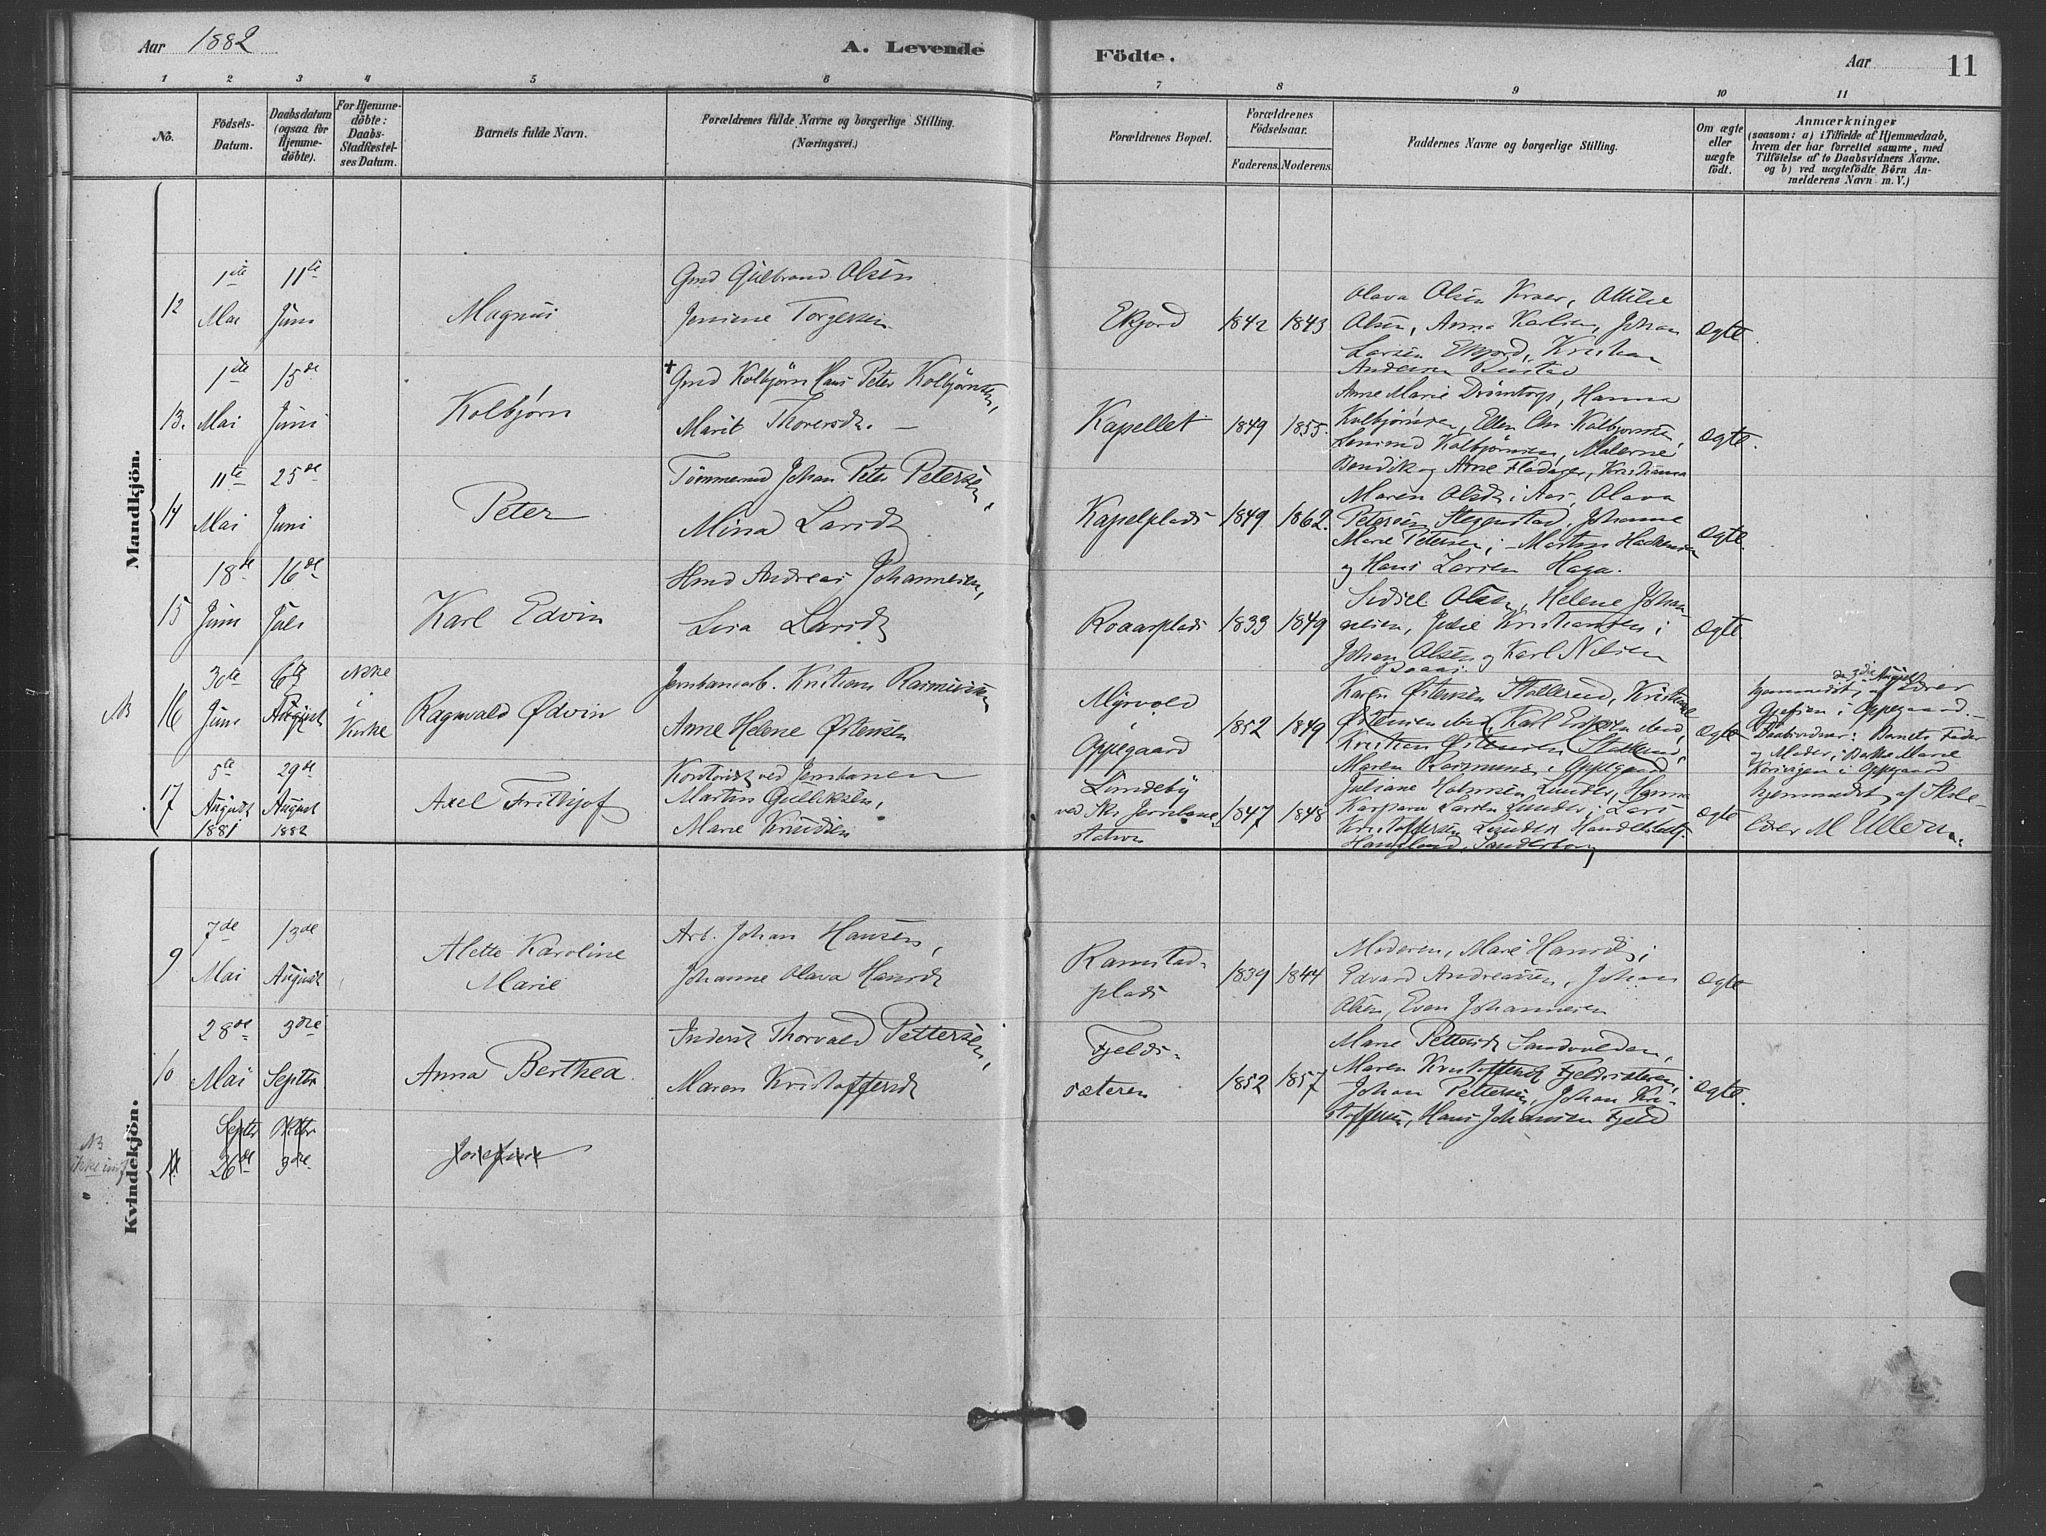 Aar 1882
A. Levende
Födte.
Aar
11
1 2 3 4 5 6 7 8 9 10 11
No.
Födsels-
Datum.
Daabsdatum
(ogsaa for
Hjemme-
döbte).
For Hjemme-
döbte:
Daabs-
Stadfæstel-
ses Datum.
Barnets fulde Navn.
Forældrenes fulde Navne og borgerlige Stilling.
(Næringsvei.)
Forældrenes Bopæl.
Forældrenes
Födselsaar.
Faderens.
Moderens.
Faddernes Navne og borgerlige Stilling.
Om ægte
eller
uægte
födt.
Anmærkninger
(saasom: a) i Tilfælde af Hjemmedaab,
hvem der har forrettet samme, med
Tilföielse af to Daabsvidners Navne.
og b) ved uægtefödte Börn An-
melderens Navn m. V.)
Mandkjön.
12
1ste
Mai
11te
Juni
Magnus
Gmd Gulbrand Olsen
Torgersen
Ekjord
1842
1843
Olava Olsen Kraer,
Olsen, Anna Karlsen, Johan
Larsen Ekjord, Kristian
Andersen
Ægte.
13.
1ste
Mai
15de
Juni
Kolbjørn
+ Gmd Kolbjørn Hans Peter Kolbjørnsen,
Marit Thoversdt. —
Kapellet
1849
1855.
Anne Marie Drömtorp, Hanna
Kolbjørnsen, Ellen Chr. Kolbjørnsen,
Kolbjørnsen, Malerne
Bendik og Arne Kristiania
Ægte.
14
11te
Mai
25de
Juni
Peter
Tømmermd Johan Peter Petersen,
Mina Larsdt
Kapelplads
1849
1862.
Maren Olsdt. i Aas, Olava
Petersen Stegenstad, Johanne
Marie Petersen; – Martin
og Hans Larsen Haga.
Ægte.
15
18de
Juni
16de
Juli
Karl Edvin
Hmd Andreas Johannesen,
Lisa Larsdt
Roaasplads
1833
1849
Sidsel Olsen, Helene Johan-
nesen, Kristiansen;
Johan Olsen og Karl Nilsen
Roaas.
Ægte
NB
16
30te
Juni
6te
August
Ikke
i
Kirke
Ragnvald Ødvin
Jernbanearb. Kristian Rasmussen
Anne Helene Østensen
Myrvold
i
Oppegaard
1852
1849
Karen Østensen Stallerud,
Østensen Karl
Kristian Østensen Stallerud,
Maren Rasmussen i Oppegaard
Ægte
den 3die August
hjemmedøbt, af Lærer
i Oppegaard. –
Daabsvidner: Barnets Fader
og Moder, Marie
i Oppegaard
17
5te
August
1881
29de
August
1882
Axel Frithjof
Kontorist ved Jernbanen
Martin Gulliksen,
Marie Knudsen
Lundeby
ved Ski Jernbane
station
1847
1848
Juliane Halvorsen Lunder, Hanna
Larsen Lunder; Lars
Kristoffersen Lunder, Handelsbetj.
Haugland, Sanderborg
Ægte
hjemmedøbt af Skole-
lærer M Ullern.
Kvindekjön.
9
7de
Mai
13de
August
Alette Karoline
Marie
Arb. Johan Hansen,
Johanne Olava Hansdt
Ramstad-
plads
1839
1844
Moderen, Marie Hansdt;
Edvard Andreassen, Johan
Olsen, Even Johannesen
Ægte
10
28de
Mai
3die
Septbr
Anna Berthea.
Inderst Thorvald Pettersen,
Maren Kristoffersdt
Fjeld-
sæteren
1852
1857
Marie Pettersdt Sandvolden,
Maren Kristoffersdt Fjeldsæteren,
Johan Pettersen, Johan Kri-
stoffersen, Hans Johansen Fjeld
Ægte.
NB
11
Septbr
26de
Oktbr
3die
Josefine